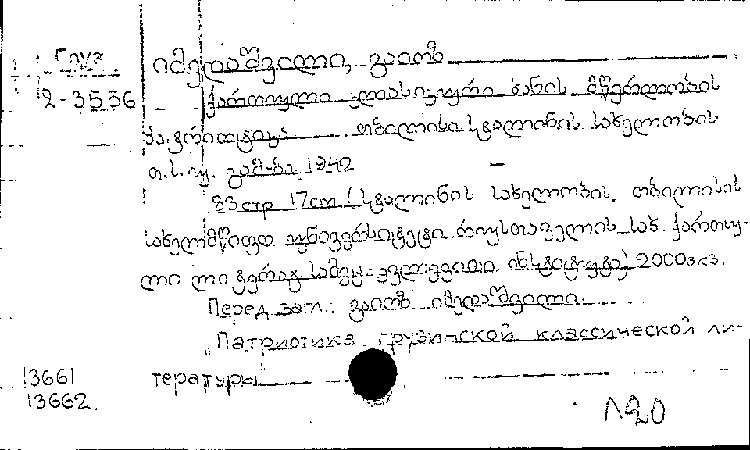 Груз. იმედაშვილი, გაიოზ
2-3536 ქართული კლასიკური ხანის მწერლობის
პატრიოტიკა თბილისი სტალინის სახელობის
თ. ს. უ. გამ-ბა, 1942
83 стр 17cm (სტალინის სახელობის. თბილისის
სახელმწიფო უნივერსიტეტი. რუსთაველის სახ. ქართუ-
ლი ლიტერატ სამეც-კვლევითი ინსტიტუტი) 2000 ეკზ.
Перед загл.: გაიოზ იმედაშვილი.
Патриотика грузинской классической ли-
13661 тературы
13662.